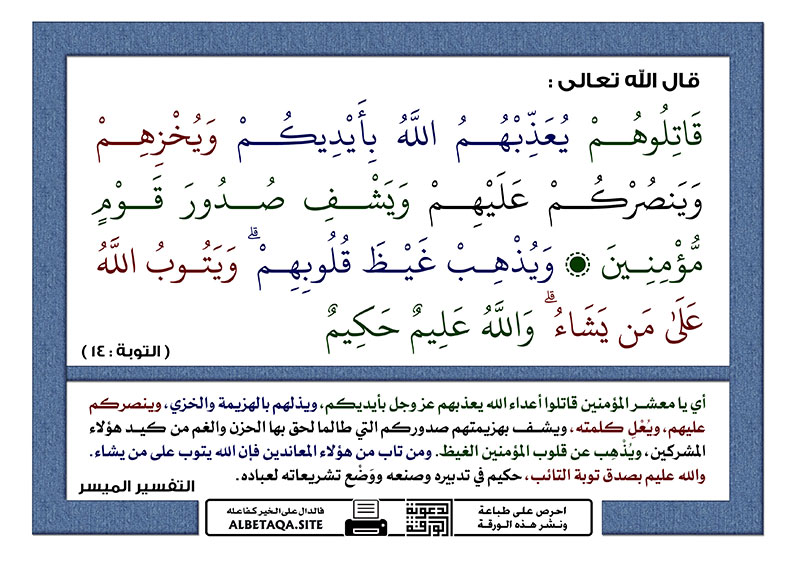 قال الله تعالى :
قَاتِلُوهُمْ يُعَذِّبْهُمُ اللَّهُ بِأَيْدِيكُمْ وَيُخْزِهِمْ
وَيَنصُرْكُمْ عَلَيْهِمْ وَيَشْفِ صُدُورَ قَوْمٍ
مُّؤْمِنِينَ ۞ وَيُذْهِبْ غَيْظَ قُلُوبِهِمْ ۗ وَيَتُوبُ اللَّهُ
عَلَىٰ مَن يَشَاءُ ۗ وَاللَّهُ عَلِيمٌ حَكِيمٌ
( التوبة : ١٤ )
أي يا معشر المؤمنين قاتلوا أعداء الله يعذبهم عز وجل بأيديكم، ويذلهم بالهزيمة والخزي، وينصركم
عليهم، ويُعْلِ كلمته، ويشف بهزيمتهم صدوركم التي طالما لحق بها الحزن والغم من كيد هؤلاء
المشركين، ويُذْهِب عن قلوب المؤمنين الغيظ. ومن تاب من هؤلاء المعاندين فإن الله يتوب على من يشاء.
والله عليم بصدق توبة التائب، حكيم في تدبيره وصنعه ووَضْع تشريعاته لعباده.
التفسير الميسر
احرص على طباعة
ونشر هذه الورقة
الورقة
الدعوية
فالدال على الخير كفاعله
ALBETAQA.SITE